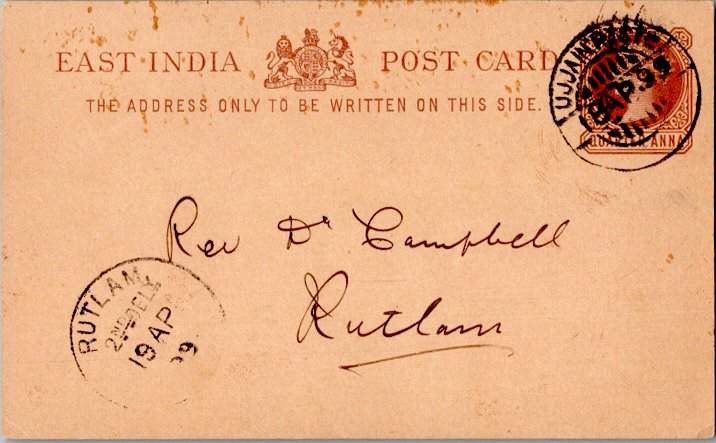 EAST INDIA POST CARD
THE ADDRESS ONLY TO BE WRITTEN ON THIS SIDE.
UJJAIN
AP 99
QUARTER ANNA
Rev Dr Campbell
Rutlam
RUTLAM
2ND DELY
19 AP